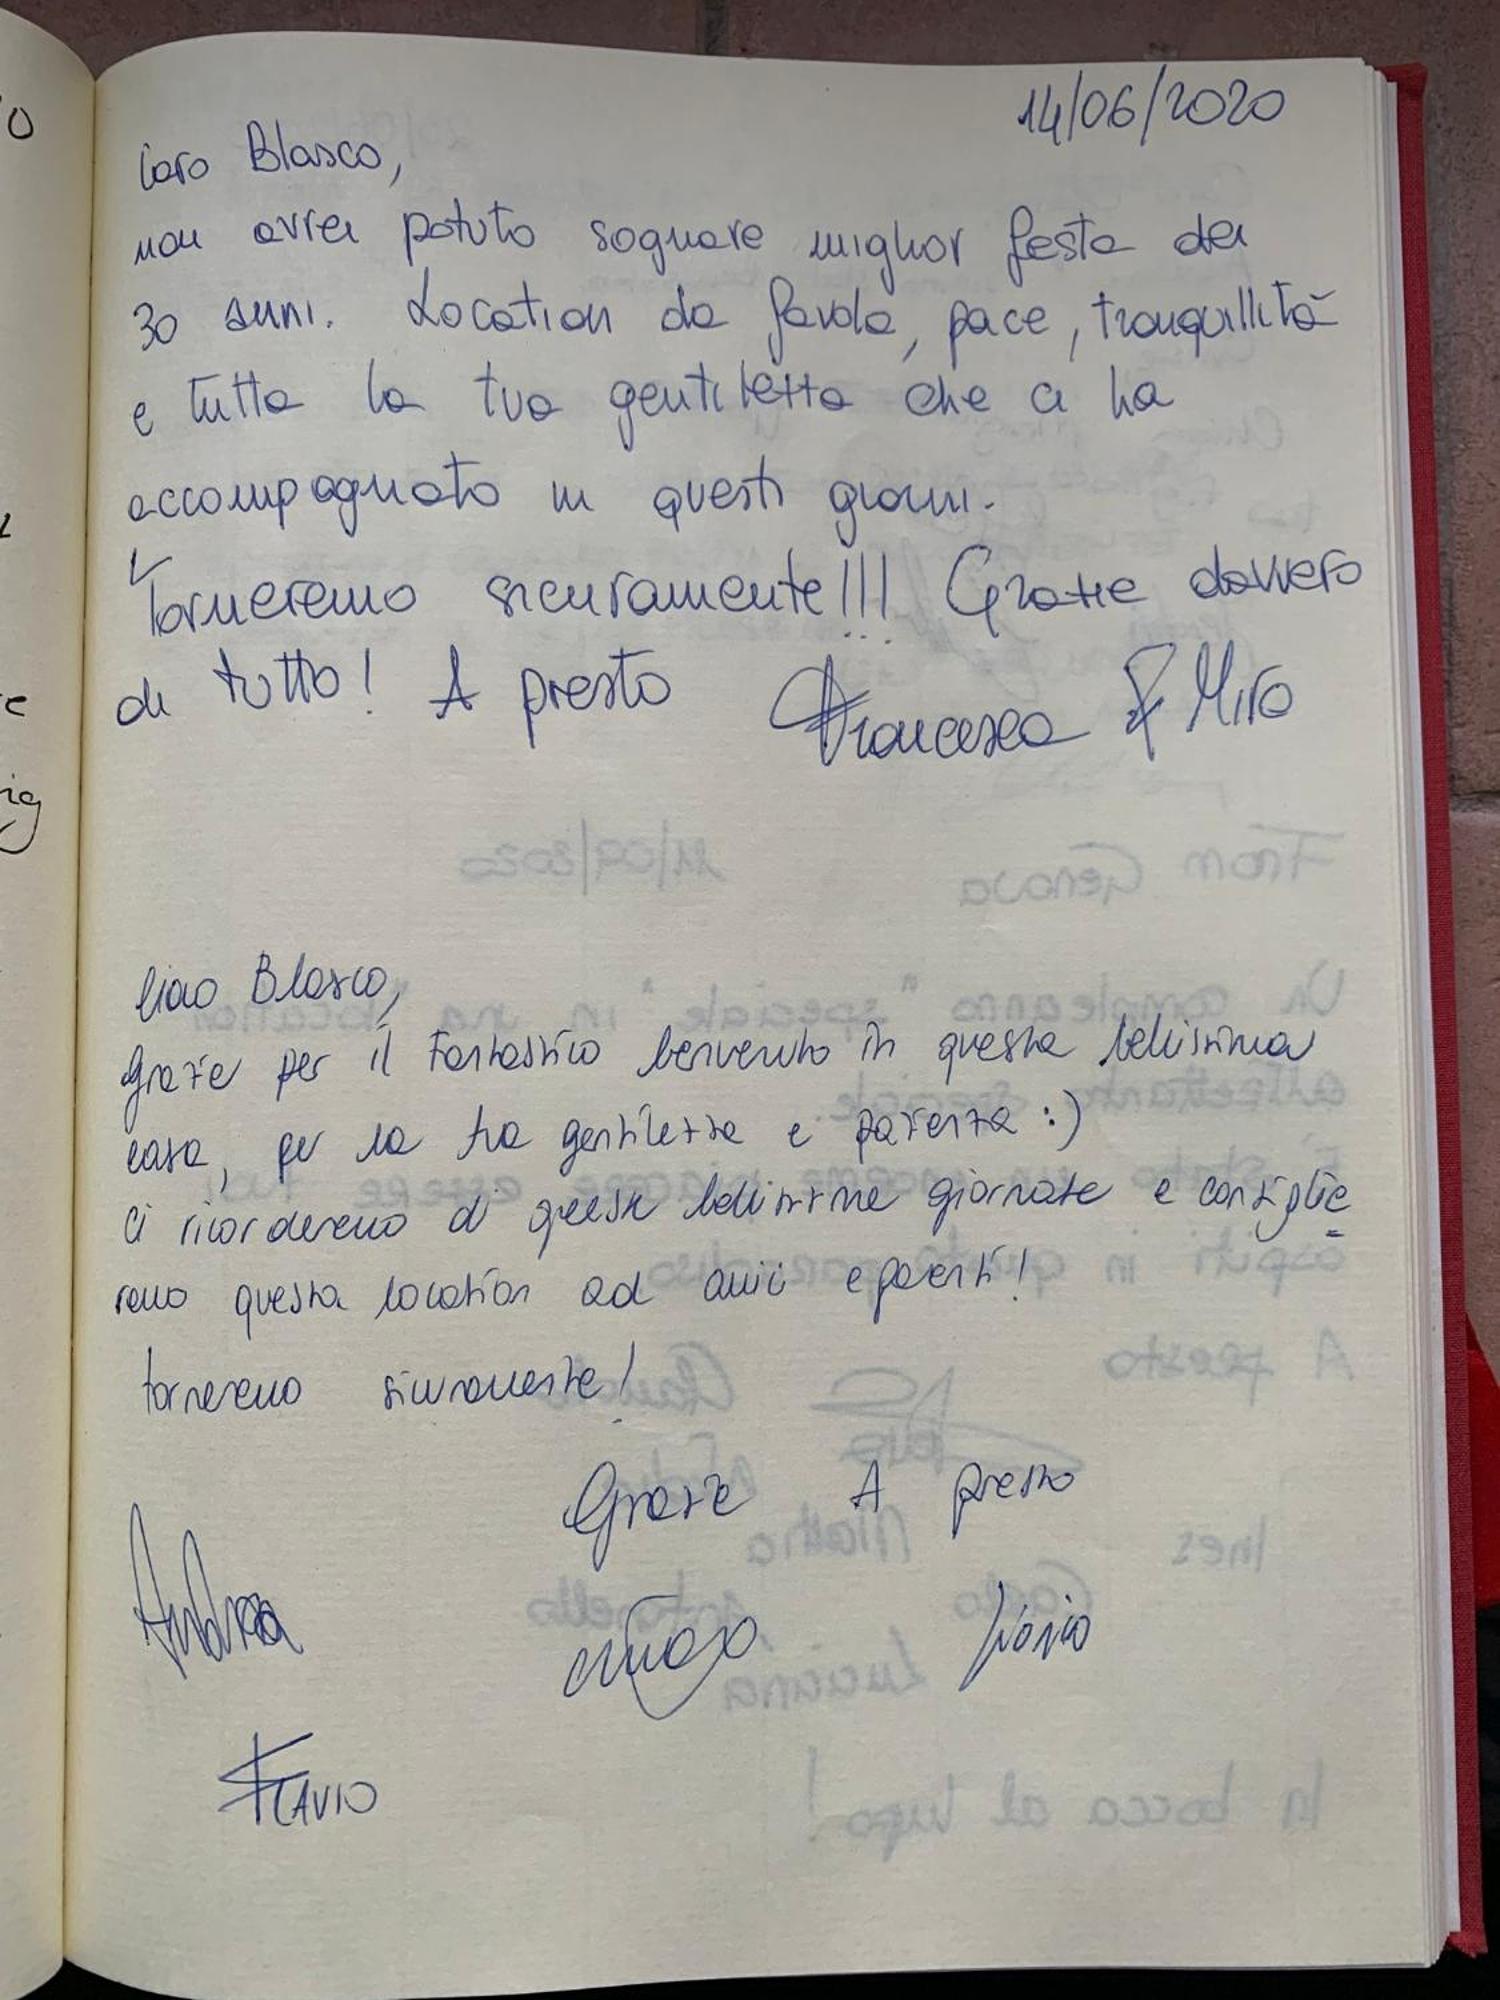 14/06/2020
Caro Blasco,
non avrei potuto sognare miglior festa dei
30 anni. Location da favola, pace, tranquillità
e tutta la tua gentilezza che ci ha
accompagnato in questi giorni.
Torneremo sicuramente!!! Grazie davvero
di tutto! A presto Francesca & Miro
Ciao Blasco,
Grazie per il fantastico benvenuto in questa bellissima
casa, per la tua gentilezza e pazienza :)
ci ricorderemo di queste bellissime giornate e consiglie
remo questa location ad amici e parenti!
torneremo sicuramente!
Grazie A presto
Andrea
FLAVIO